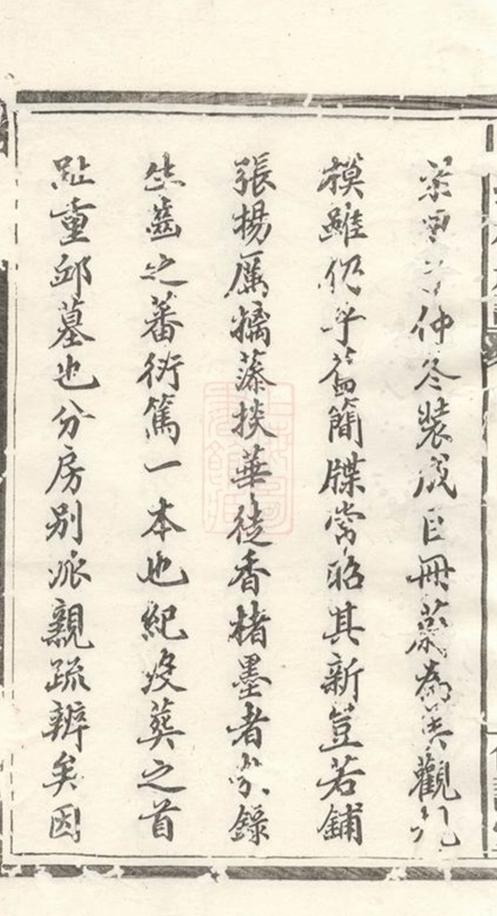 仲冬裝成巨冊蔚為美觀
模雖仍乎舊簡牒常昭其新豈若鋪
張揚厲摛藻掞華徒香楮墨者錄
齒之蕃衍篤一本也紀歿葬之首
趾重邱墓也分房別派親疏辨矣因